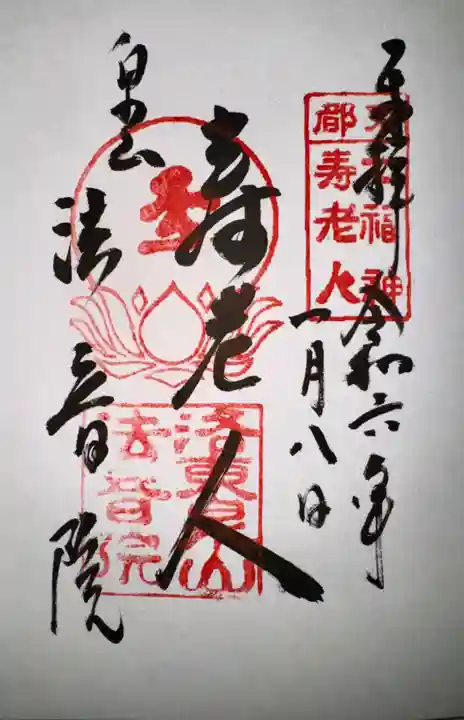 奉拝
令和六年
一月八日
寿老人
法音院
七福神
都寿老人
洛東泉山
法音院